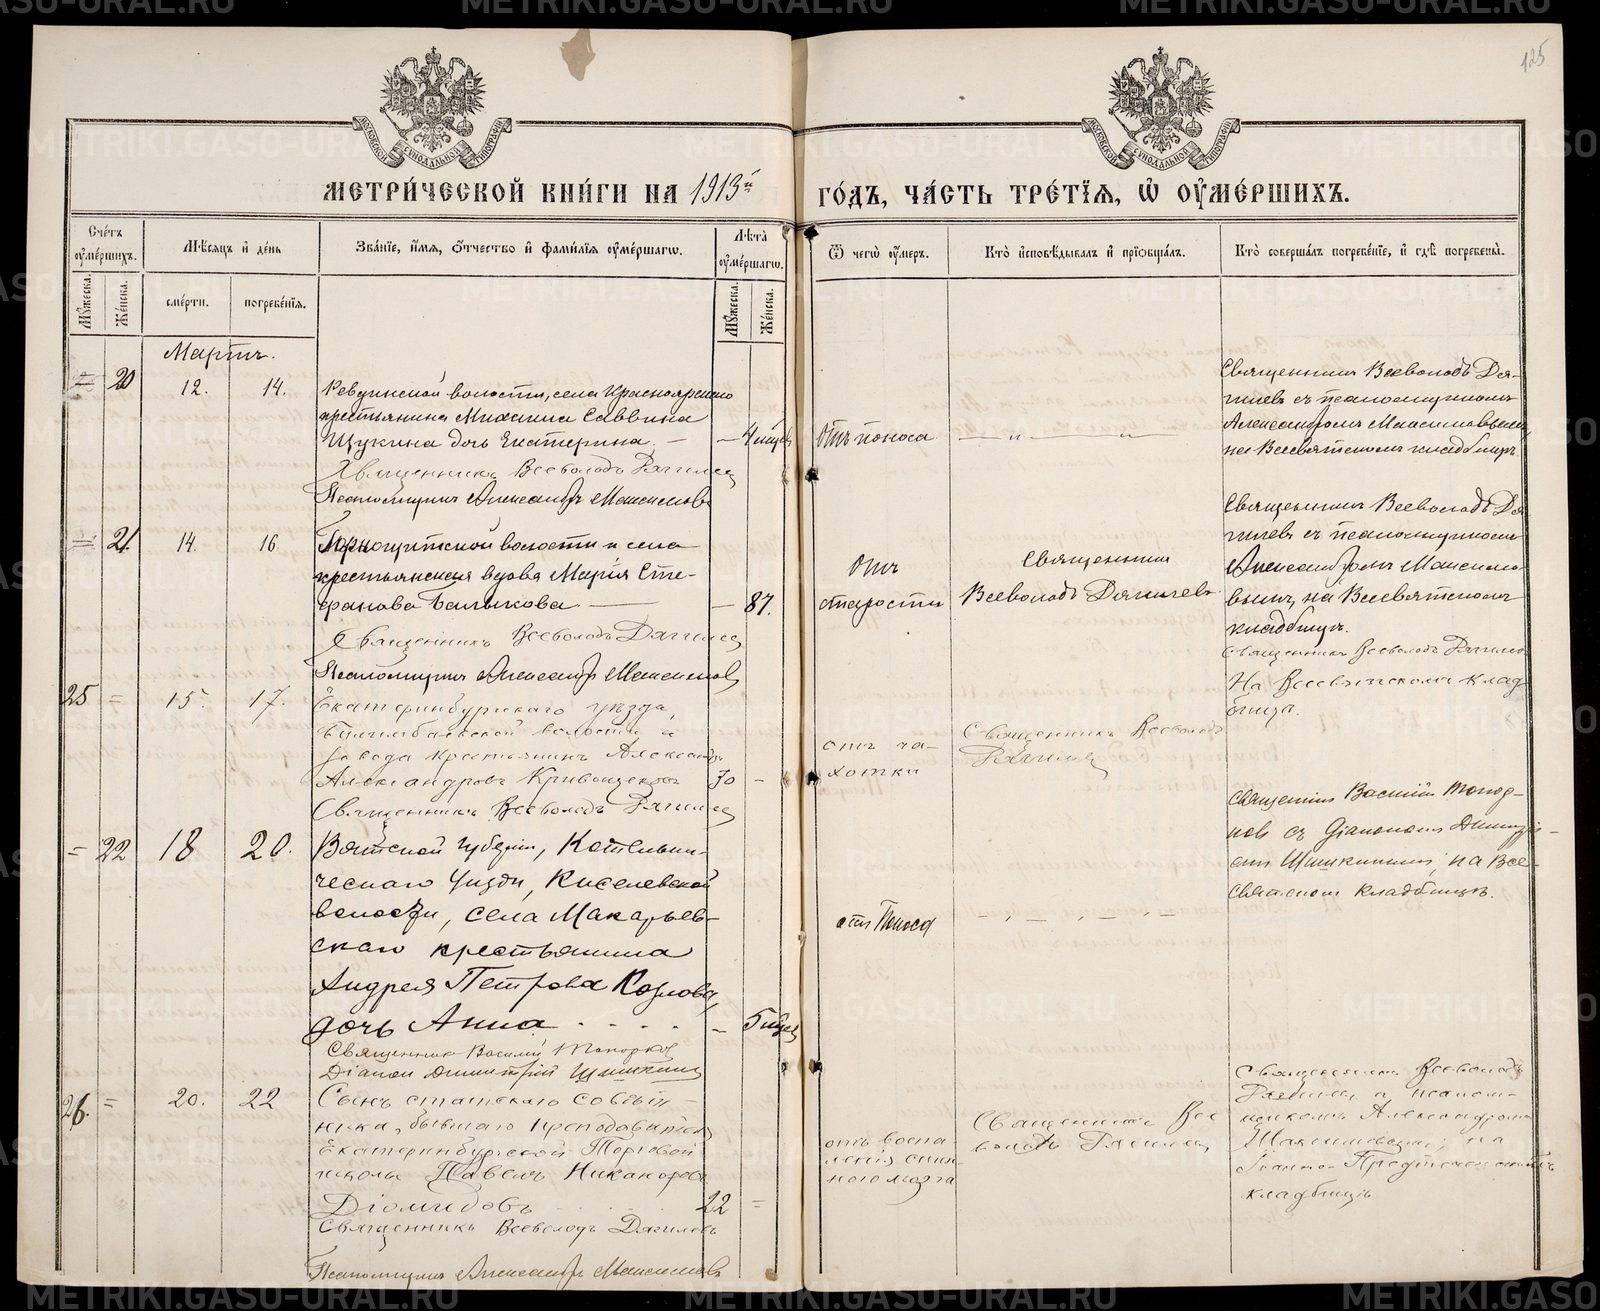 METRIKI.GASO-URAL.RU
125
МОСКОВСКОЙ СѴНОДАЛЬНОЙ ТИПОГРАФІИ
МОСКОВСКОЙ СѴНОДАЛЬНОЙ ТИПОГРАФІИ
МЕТРИ́ЧЕСКОЙ КНИ́ГИ НА 1913й
ГО́ДЪ, ЧА́СТЬ ТРЕ́ТЇѦ, Ѡ҆ ОУ҆МЕ́РШИХЪ.
Сче́тъ оу҆ме́ршихъ.
Мꙋ́жеска.
Же́нска.
Мѣ́сѧцъ и҆ де́нь
сме́рти.
погребе́нїѧ.
Зва́нїе, и҆́мѧ, ѻ҆́тчество и҆ фами́лїѧ оу҆ме́ршагѡ.
Лѣ́та оу҆ме́ршагѡ.
Мꙋ́жеска.
Же́нска.
Ѿ чегѡ̀ оу҆́меръ.
Кто̀ и҆сповѣ́дывалъ и҆ прїѡбща́лъ.
Кто̀ соверша́лъ погребе́нїе, и҆ гдѣ̀ погребены̀.
Мартъ.
= 20 12. 14.
Ревдинской волости, села Красноярскаго
крестьянина Михаила Саввина
Щукина дочь Екатерина. — — 4 мѣсяц
Священникъ Всеволодъ Дягилев
Псаломщикъ Александръ Максимовъ
отъ поноса
— „ — „ —
Священникъ Всеволодъ Дя-
гилевъ съ псаломщикомъ
Александромъ Максимовымъ
на Всесвятскомъ кладбищѣ
= 21. 14. 16
волости и села
крестьянская вдова Марія Сте-
фанова Балыкова — — 87.
Священникъ Всеволодъ Дягилев
Псаломщикъ Александръ Максимовъ
Отъ
старости
Священник
Всеволодъ Дягилевъ
Священникъ Всеволодъ Дя
гилевъ съ псаломщикомъ
Александромъ Максимо
вымъ, на Всесвятскомъ
кладбищѣ.
Священникъ Всеволодъ Дягилев
На Всесвятскомъ клад
бищѣ.
25 = 15. 17.
Екатеринбургскаго уѣзда,
Билимбаевской волости и
завода крестьянинъ Александръ
Александровъ Кривощековъ 70 —
Священникъ Всеволодъ Дягилев
отъ ча-
хотки
Священникъ Всеволодъ
Дягилев
= 22 18 20.
Вятской губерніи, Котельни-
ческаго уѣзда, Киселевской
волости, села Макарьев-
скаго крестьянина
Андрея Петрова Козлова,
дочь Анна . . . . — 5 мѣсяц
Священник Василій Топорков
Діакон Димитрій Шишкинъ
отъ поноса
— „ — „ — „ —
Священник Василій Топор-
ковъ съ діакономъ Димитрі-
емъ Шишкинымъ, на Все-
святском кладбищѣ.
26. = 20. 22
Сынъ статскаго совѣт-
ника, бывшаго преподавателя
Екатеринбургской Торговой
школы Павелъ Никаноровъ
Діомидовъ . . . . 22 =
Священникъ Всеволодъ Дягилевъ
Псаломщикъ Александръ Максимовъ
отъ воспа-
ленія спин-
ного мозга
Священникъ Все
володъ Дягилев
Священникъ Всеволодъ
Дягилев с псалом-
щикомъ Александромъ
Максимовымъ, на
Іоанно-Предтеченскомъ
кладбищѣ